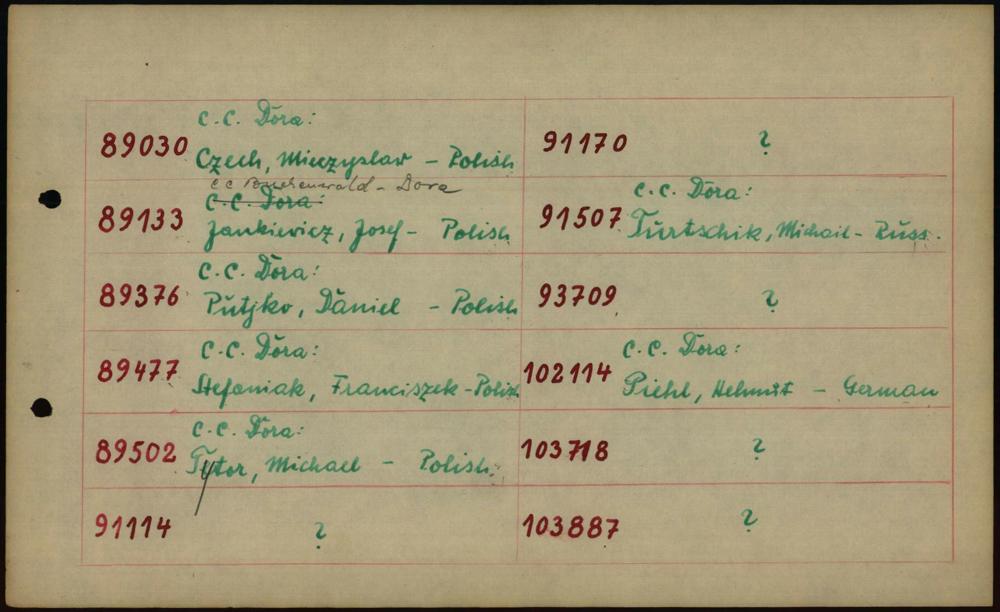 c.c. Dora:
89030 Czech, Mieczyslaw – Polish
c c Buchenwald – Dora
c.c. Dora:
89133 Jankiewicz, Josef – Polish
c.c. Dora:
89376 Putjko, Daniel – Polish
c.c. Dora:
89477 Stefaniak, Franciszek – Polish
c.c. Dora:
89502 Tytor, Michael – Polish
91114 ?
91170 ?
c.c. Dora:
91507 Turtschik, Michail – Russ.
93709 ?
c.c. Dora:
102114 Piehl, Helmut – German
103718 ?
103887 ?